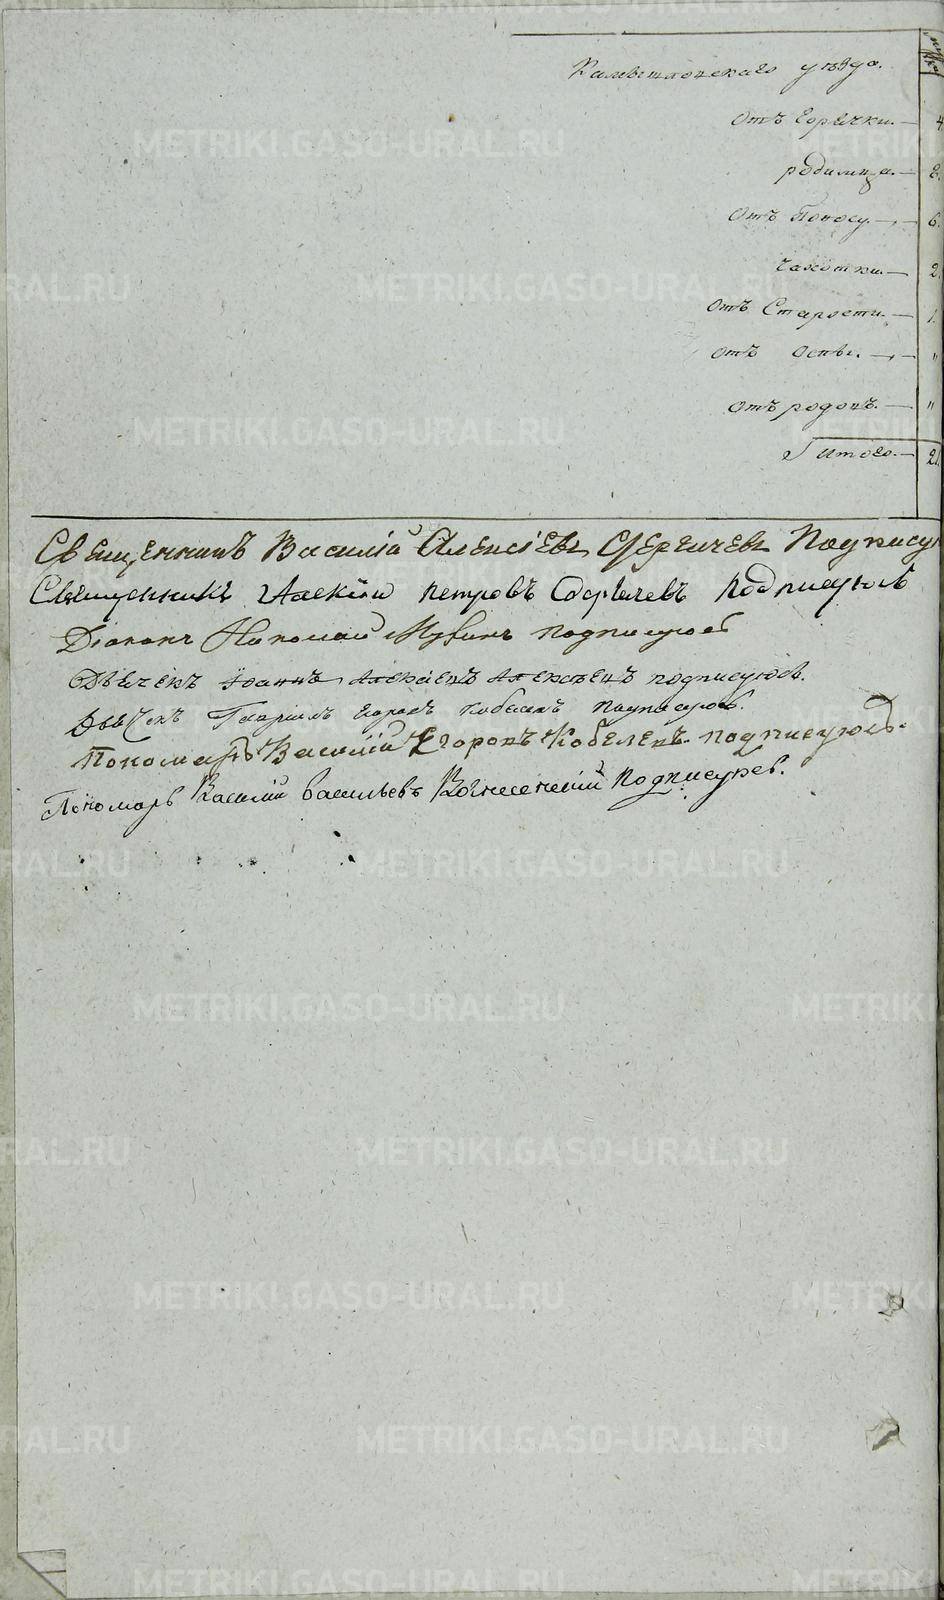 Камышловскаго уѣзда.
Отъ Горячки. — 4
родимца. — 8.
Отъ Поносу. — 6.
Чахотки. — 2.
Отъ Старости. — 1.
Отъ Оспы. — "
Отъ родовъ. — "
Итого. — 21.
Священникъ Василій Алексіевъ Сергиевъ Подпису
Священникъ Алексій Петровъ подписуюсь
Діаконъ Николай подписуюсь
Дьячекъ Іоаннъ подписуюсь.
Дьячекъ Гавріилъ Егоровъ Кобелевъ подписуюсь.
Пономарь Василій Егоровъ Кобелевъ подписуюсь.
Пономарь Василій Васильевъ Вознесенскій Подписуюсь.
METRIKI.GASO-URAL.RU